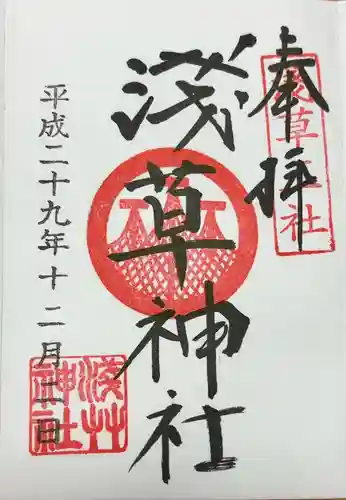 奉拝
浅草神社
淺草神社
平成二十九年十二月二日
淺艸
神社